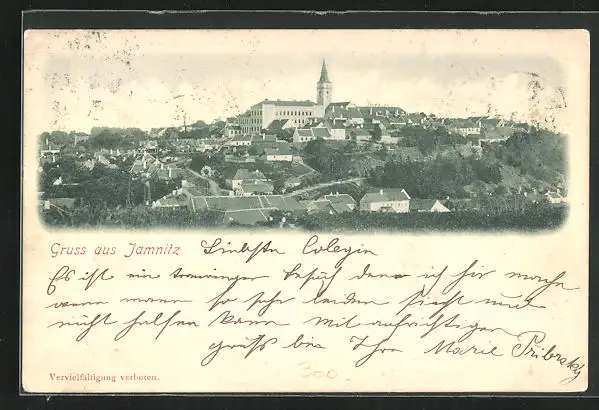 Gruss aus Jamnitz
Liebste Colegin
Es ist ein trauriger Besuch den ich hir mache
wenn mann so sehr leiden sieht und
nicht helfen kann mit aufrichtiger
grüsse bin Ihre Marie Pribrzky
Vervielfältigung verboten.
300